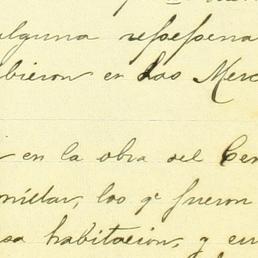 alguna
bieron en las Merc
en la obra del Cem
los q.e fueron
sa habitacion, y en